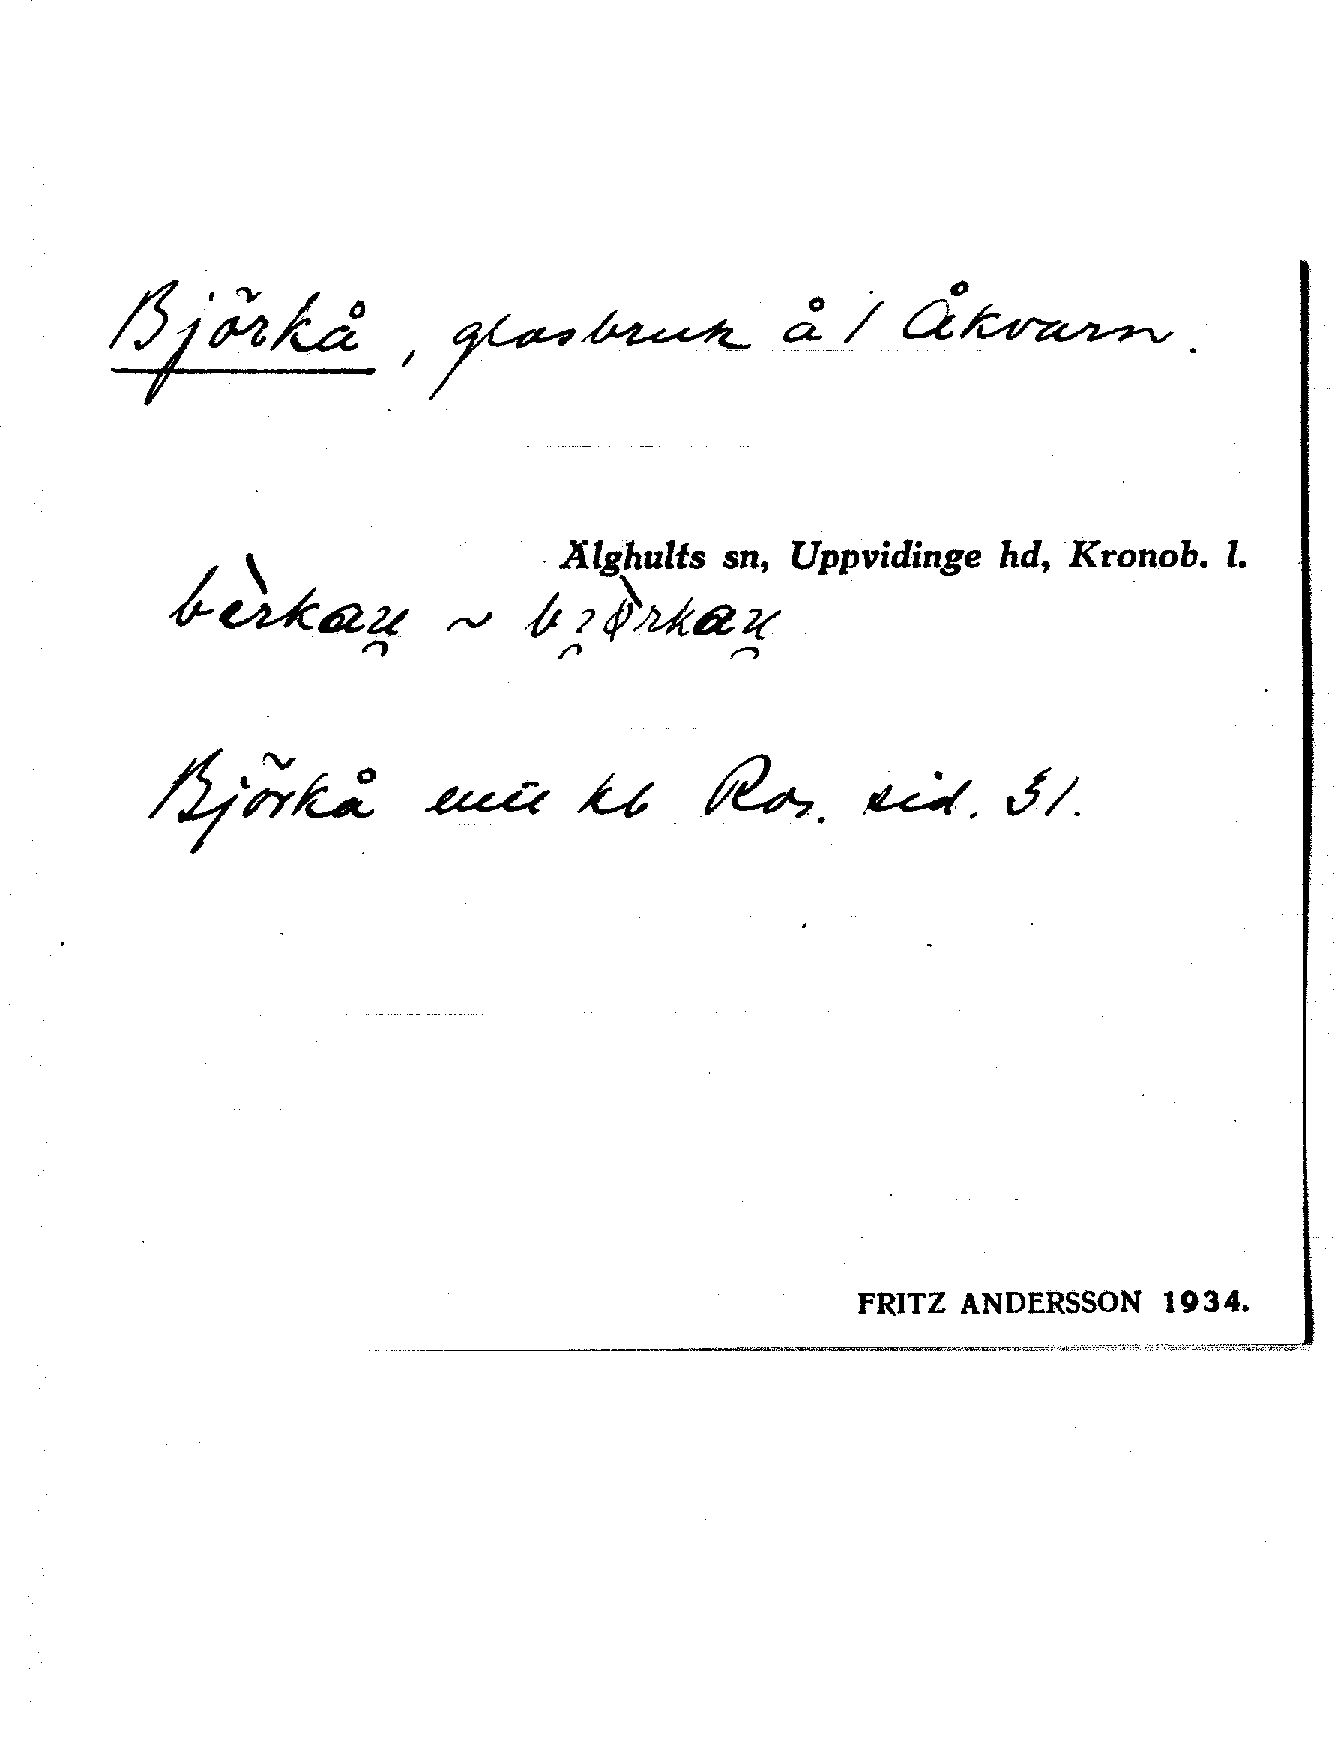 Björkå, glasbruk å 1 Åkvarn.
Älghults sn, Uppvidinge hd, Kronob. l.
bèrkau̯ ~ bi̯ø̀rkau̯
Björkå kb Ros. sid. 31.
FRITZ ANDERSSON 1934.